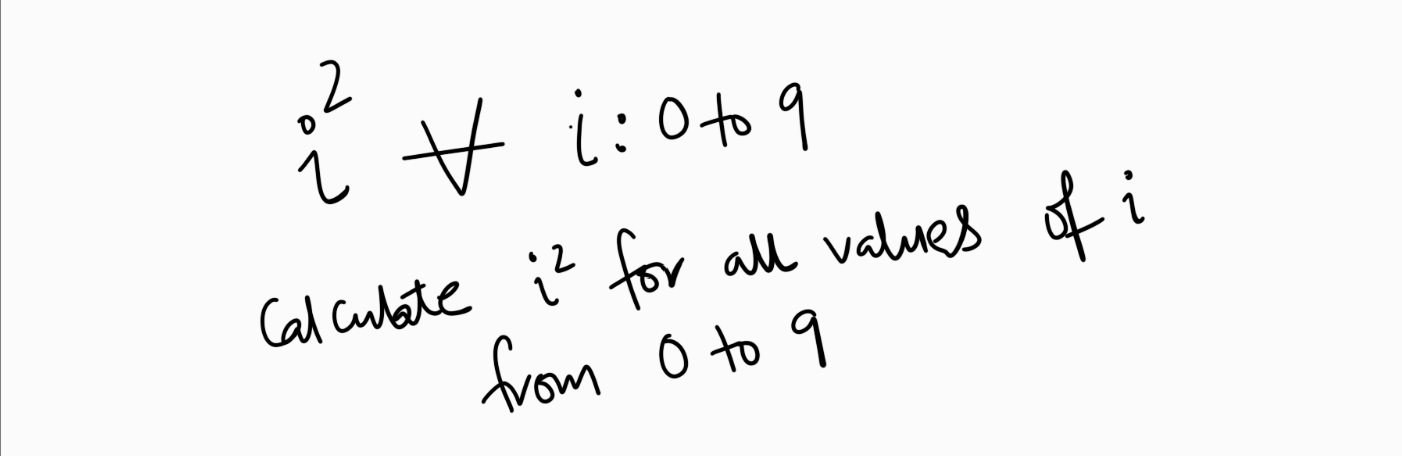 i² ∀ i: 0 to 9
Calculate i² for all values of i
from 0 to 9